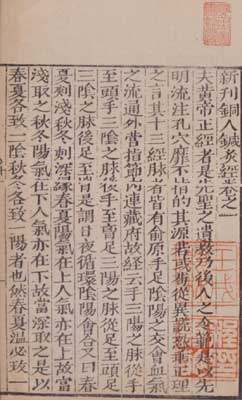 新刊銅人鍼灸經卷之一
夫黃帝正經者是先聖之遺教乃後人之令範是以先
明流注孔穴靡不指的其源若或苟從異說恐乖正理
之言其十二經脉者皆有俞原手足陰陽之交會血氣
之流通外營指節內連藏府故經云手三陽之脉從手
至頭手三陰之脉從手至胷足三陽之脉從足至頭足
三陰之脉從足至胷是謂日夜循環陰陽會合又曰春
夏刺淺秋冬刺深緣春夏陽氣在上人氣亦在上故當
淺取之秋冬陽氣在下人氣亦在下故當深取之是以
春夏各致一陰秋冬各致一陽者也然春夏溫必致一